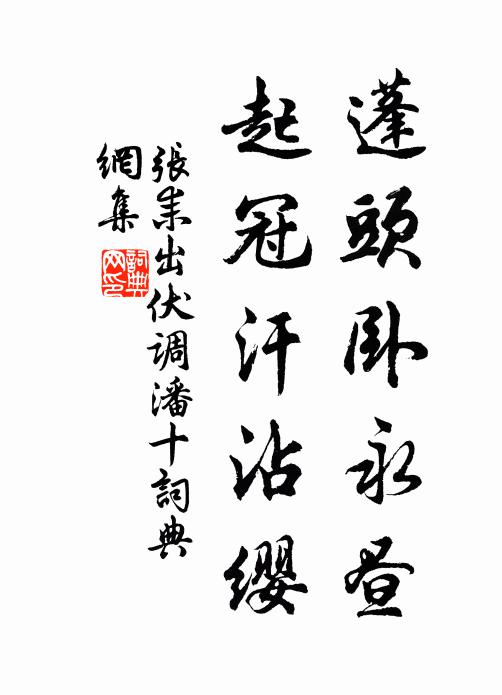 蓬頭卧永昼
起冠汗沾缨
張耒出伏调潘十詞典
網集
詞典
网印